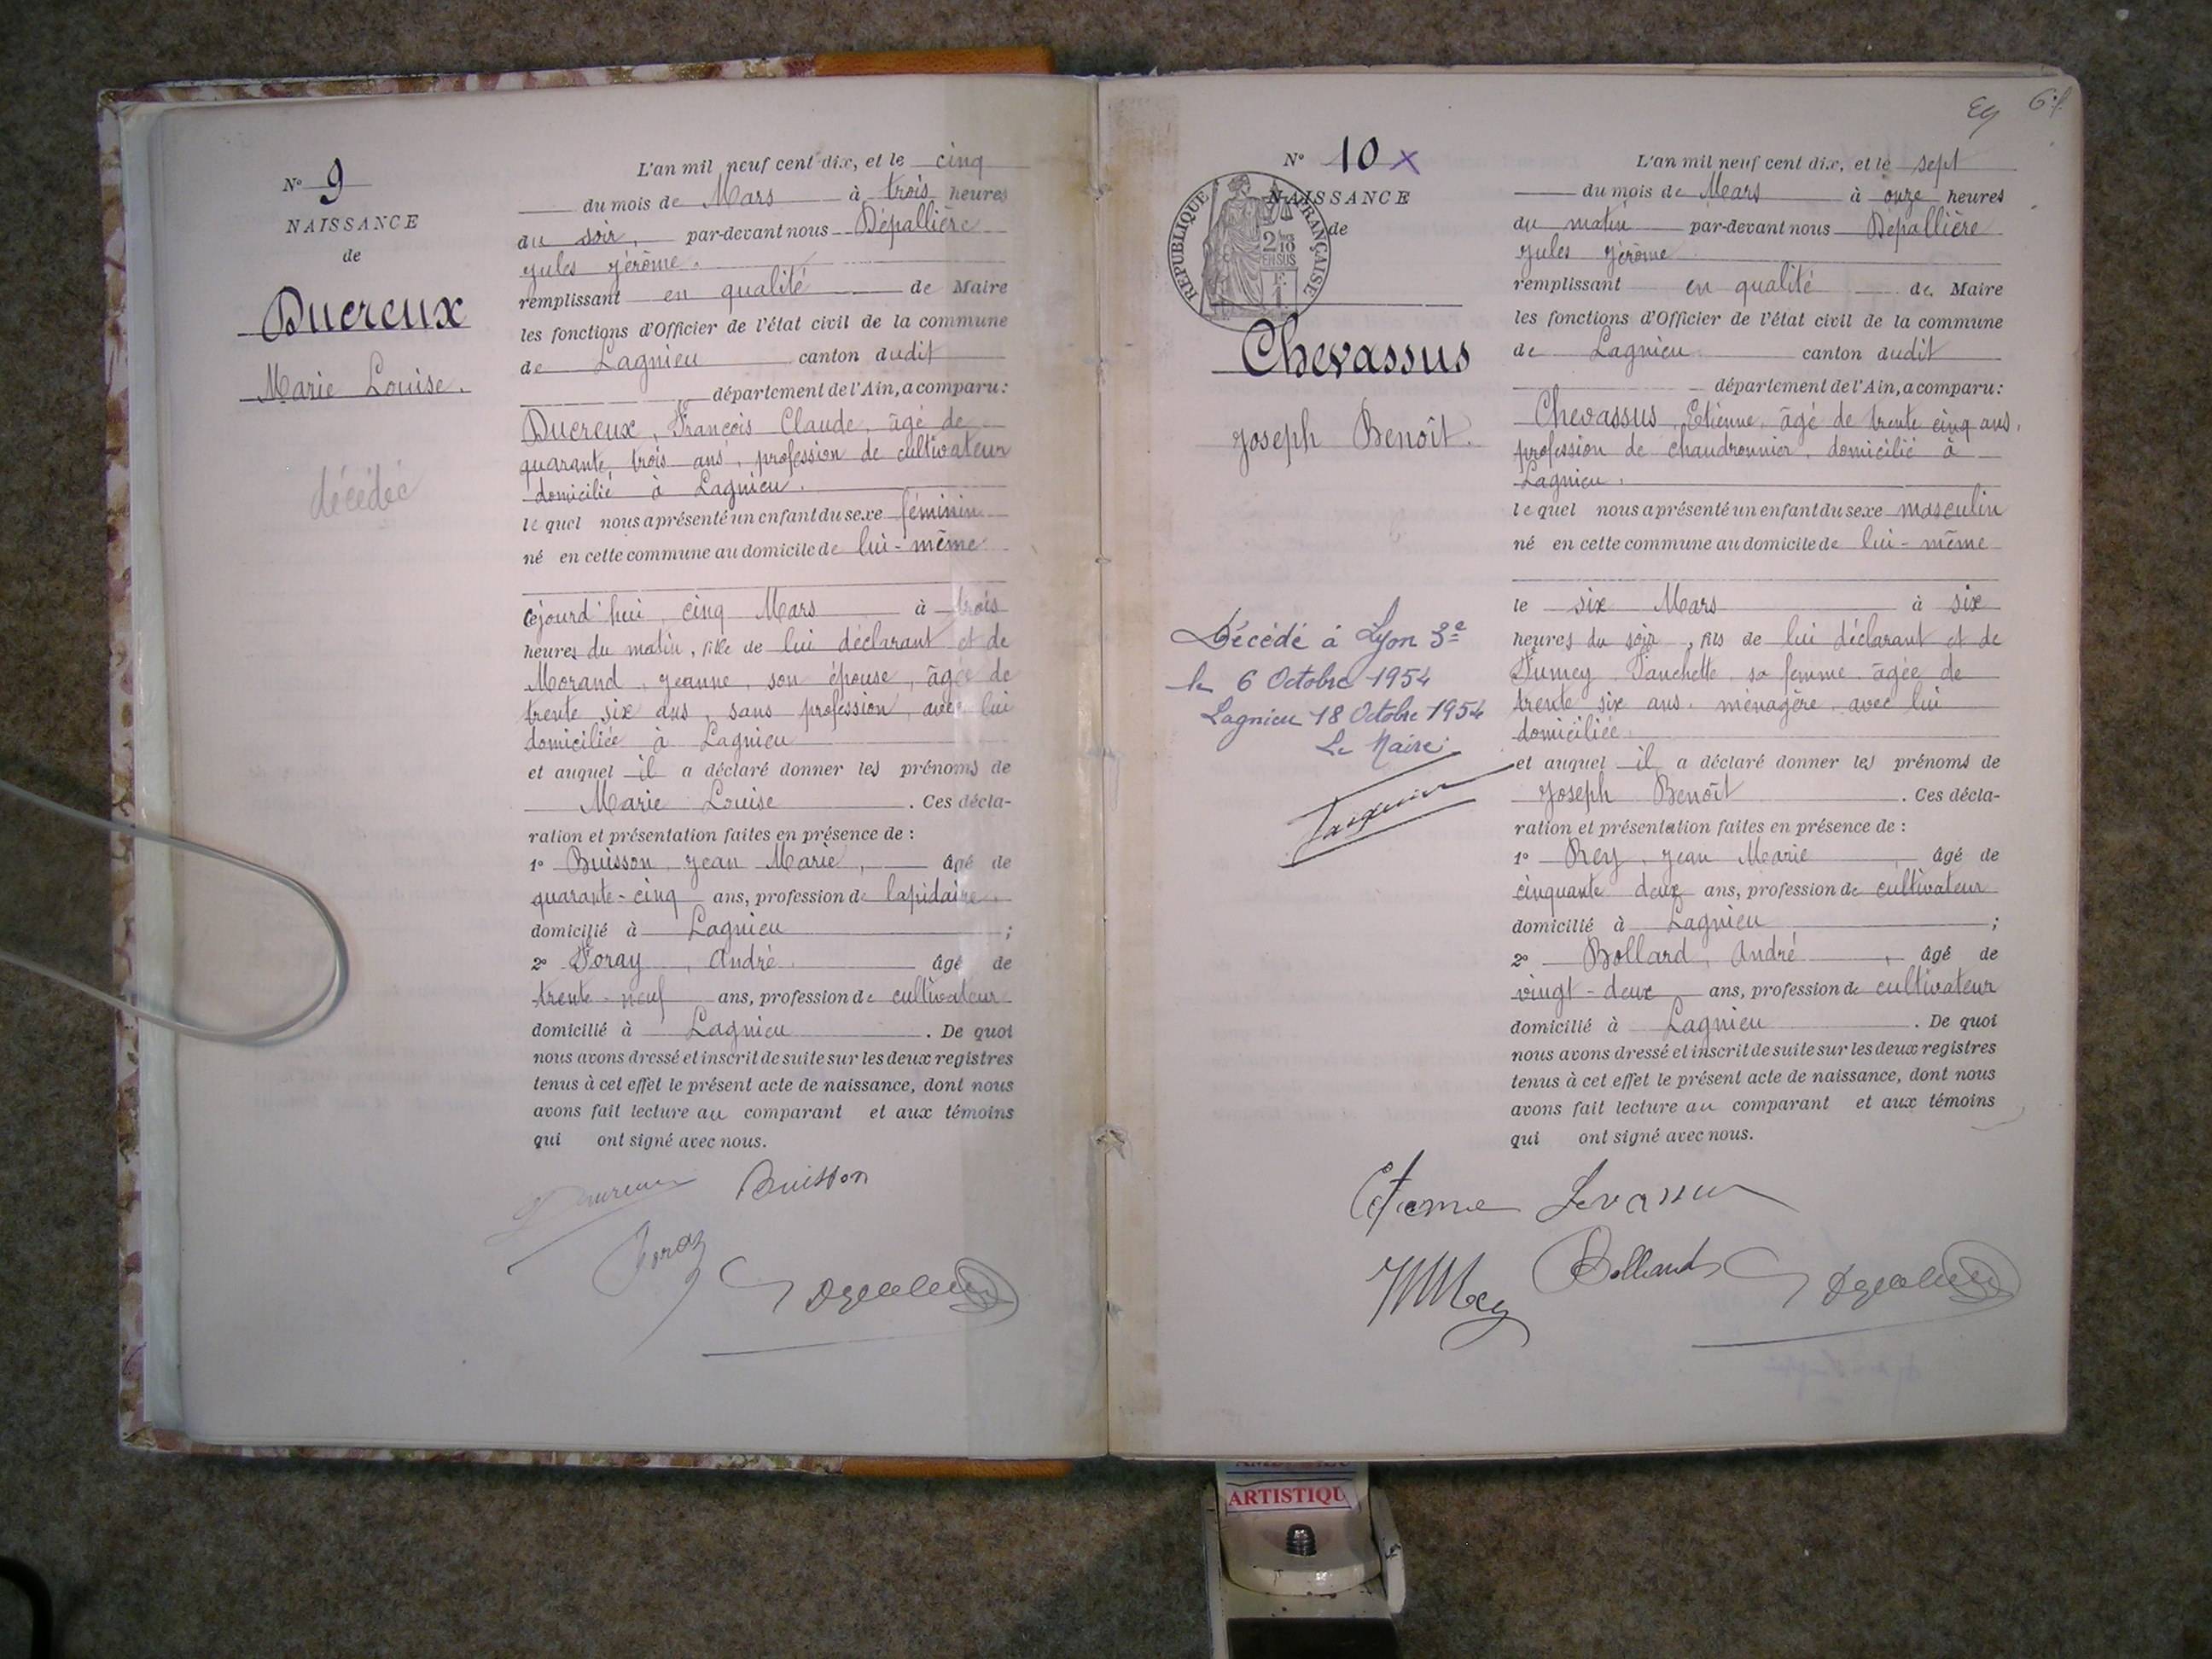 N° 9
NAISSANCE
de
Ducreux
Marie Louise.
décédée
L'an mil neuf cent dix, et le cinq
du mois de Mars à trois heures
du soir, par-devant nous Dépallière
Jules Jérôme.
remplissant en qualité de Maire
les fonctions d'Officier de l'état civil de la commune
de Lagnieu canton dudit
département de l'Ain, a comparu:
Ducreux, François Claude, âgé de
quarante trois ans, profession de cultivateur
domicilié à Lagnieu.
lequel nous a présenté un enfant du sexe féminin
né en cette commune au domicile de lui-même
cejourd'hui cinq Mars à trois
heures du matin, fille de lui déclarant et de
Morand, Jeanne, son épouse, âgée de
trente six ans, sans profession, avec lui
domiciliée à Lagnieu
et auquel il a déclaré donner les prénoms de
Marie Louise. Ces décla-
ration et présentation faites en présence de :
1° Buisson, Jean Marie, âgé de
quarante-cinq ans, profession de lapidaire
domicilié à Lagnieu ;
2° Foray, André âgé de
trente-neuf ans, profession de cultivateur
domicilié à Lagnieu. De quoi
nous avons dressé et inscrit de suite sur les deux registres
tenus à cet effet le présent acte de naissance, dont nous
avons fait lecture au comparant et aux témoins
qui ont signé avec nous.
Ducreux Buisson
Foray
N° 10 x
NAISSANCE
de
REPUBLIQUE FRANÇAISE
2/10
EN SUS
Chevassus
Joseph Benoît.
Décédé à Lyon 3e
le 6 Octobre 1954
Lagnieu 18 Octobre 1954
Le Maire
L'an mil neuf cent dix, et le sept
du mois de Mars à onze heures
du matin par-devant nous Dépallière
Jules Jérôme
remplissant en qualité de Maire
les fonctions d'Officier de l'état civil de la commune
de Lagnieu canton dudit
département de l'Ain, a comparu:
Chevassus, Etienne, âgé de trente cinq ans,
profession de chaudronnier, domicilié à
Lagnieu.
lequel nous a présenté un enfant du sexe masculin
né en cette commune au domicile de lui-même
le six Mars à six
heures du soir, fils de lui déclarant et de
sa femme âgée de
trente six ans, ménagère avec lui
domiciliée
et auquel il a déclaré donner les prénoms de
Joseph Benoît. Ces décla-
ration et présentation faites en présence de :
1° Rey, Jean Marie, âgé de
cinquante deux ans, profession de cultivateur
domicilié à Lagnieu ;
2° Bollard, André, âgé de
vingt-deux ans, profession de cultivateur
domicilié à Lagnieu. De quoi
nous avons dressé et inscrit de suite sur les deux registres
tenus à cet effet le présent acte de naissance, dont nous
avons fait lecture au comparant et aux témoins
qui ont signé avec nous.
ARTISTIQU